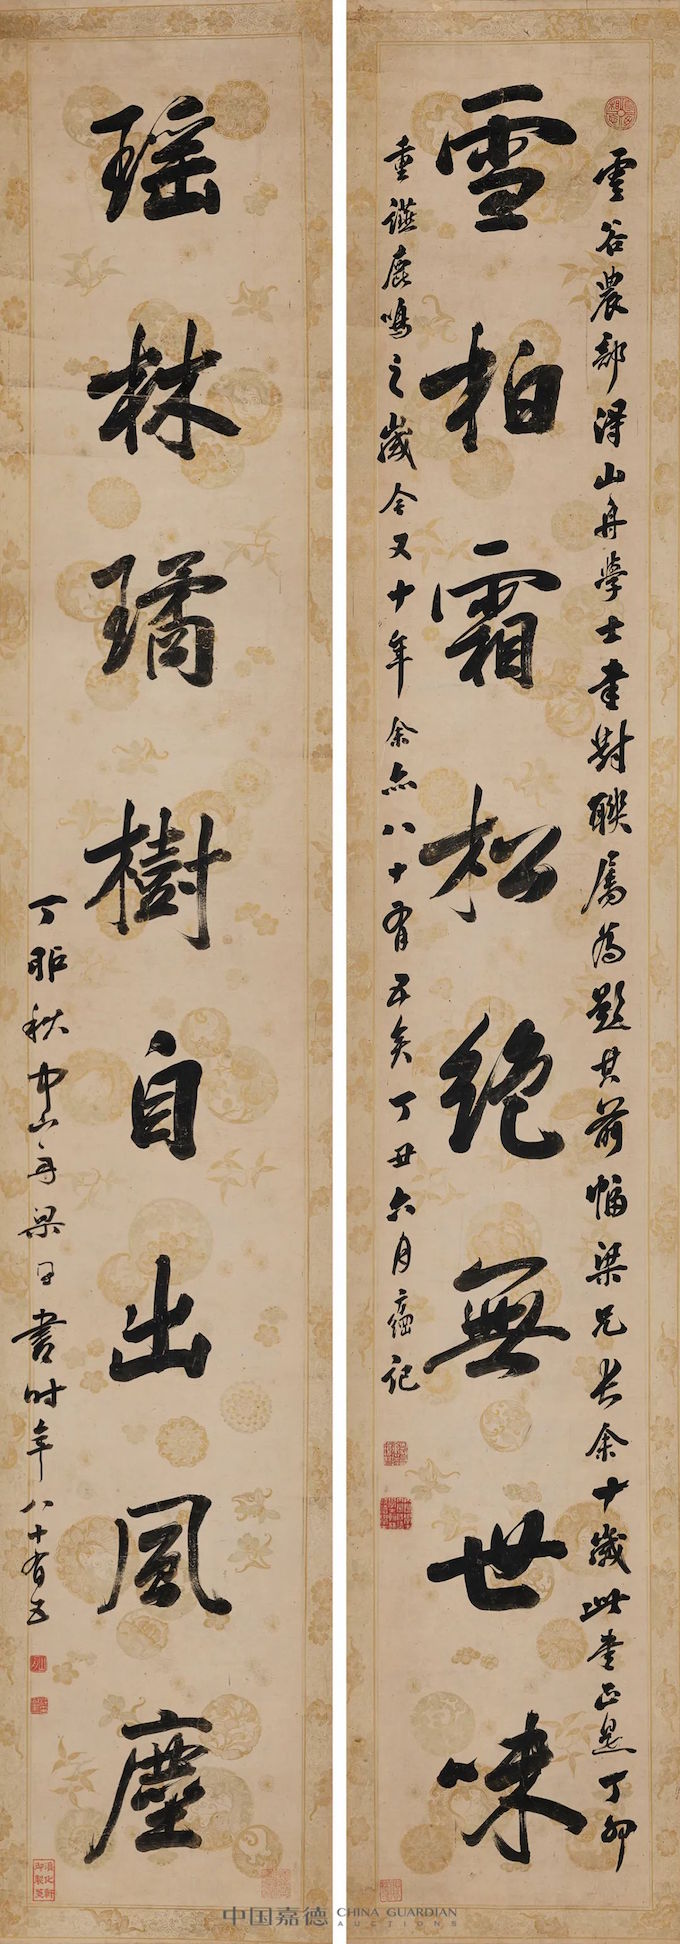 雪柏霜松絶無世味
瑶林璚樹自出風塵
雲谷農部得山舟學士書對聯屬為題其前幅梁兄長余十歲此書正是丁卯
重讌鹿鳴之歲今又十年余亦八十有五矣丁丑六月記
丁卯秋中山舟梁同書時年八十有五
淳化軒
中国嘉德 CHINA GUARDIAN
AUCTIONS